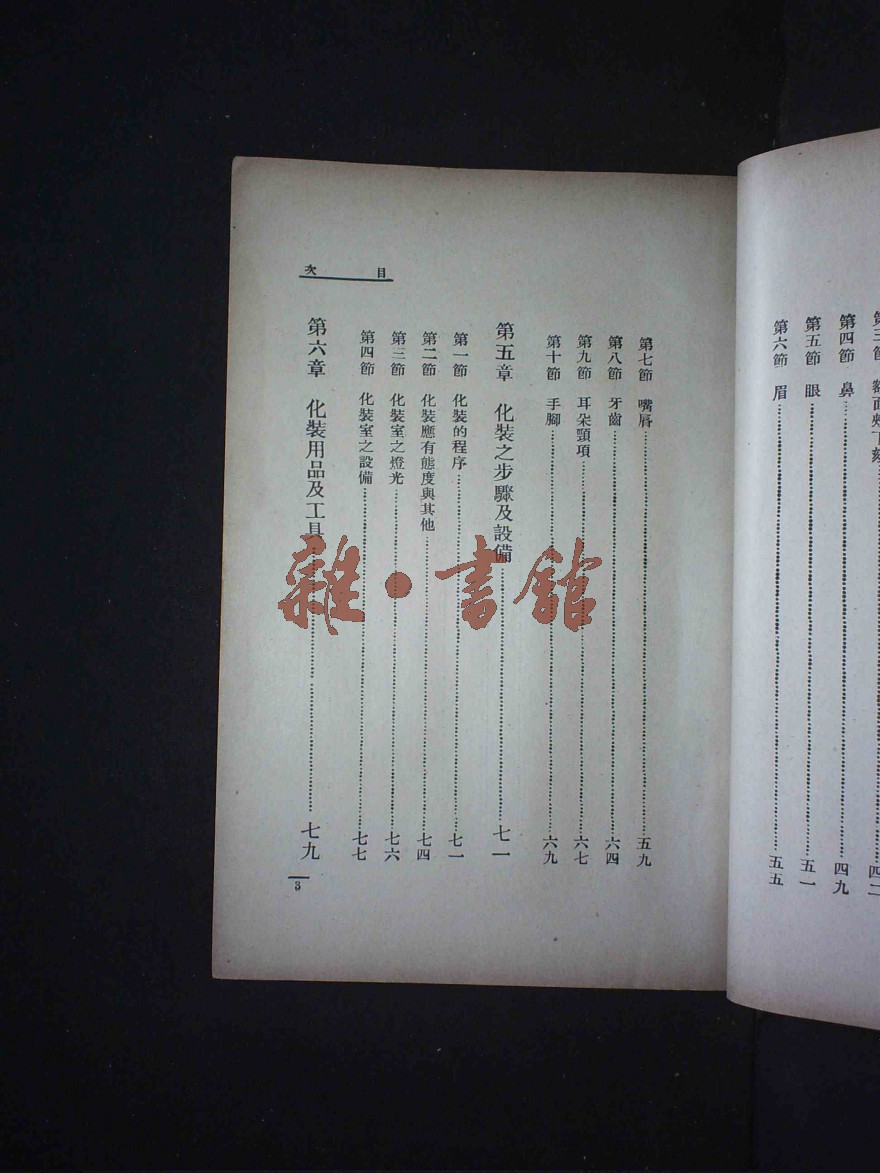 第四節 鼻 四九
第五節 眼 五一
第六節 眉 五五
目次
第七節 嘴唇 五九
第八節 牙齒 六四
第九節 耳朵頸項 六七
第十節 手腳 六九
第五章 化裝之步驟及設備 七一
第一節 化裝的程序 七一
第二節 化裝應有態度與其他 七四
第三節 化裝室之燈光 七六
第四節 化裝室之設備 七七
第六章 化裝用品及工具 七九
3
雜·書館